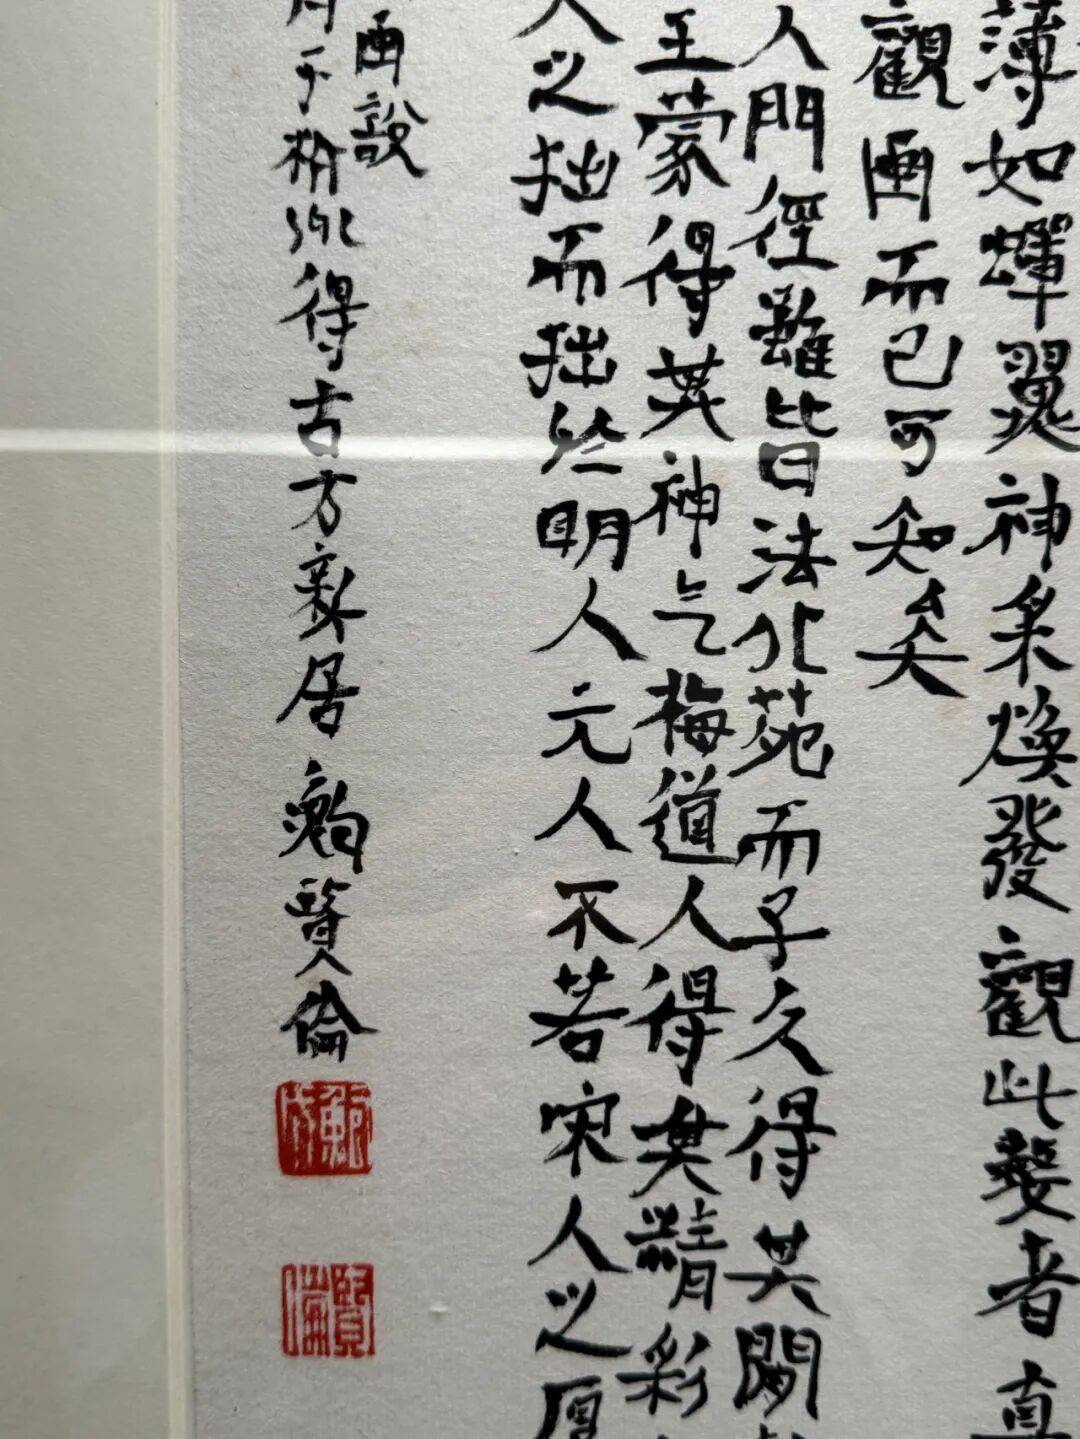 薄如蟬翼神采煥發觀此者真
觀画而已可知矣
人門徑雖皆法北苑而子久得其闊
王蒙得其神气梅道人得其精彩
人之拙而拙於明人元人不若宋人之厚
画說
于得古方新居鮑賢倫
鮑
賢倫